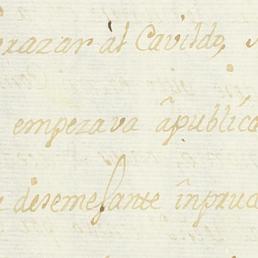 razar àl Cavildo,
empezava âpublica
desemejante înprud